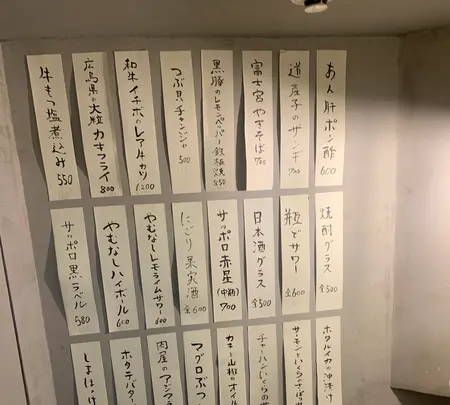 あん肝ポン酢 600
道産子のザンギ 700
富士宮やきそば 700
黒豚のレモンペッパー鉄板焼 850
つぶ貝チャンジャ 500
和牛イチボのレア牛カツ 1200
広島県産大粒カキフライ 800
牛もつ塩煮込み 550
焼酎グラス 全500
瓶でサワー 全600
日本酒グラス 全500
サッポロ赤星(中瓶) 700
にごり果実酒 全600
やむなしレモンライムサワー 600
やむなしハイボール 600
サッポロ黒ラベル 580
ホタルイカの沖漬け
サーモンといくらの
チャーハンいくらの
カキと山椒のオイル
マグロぶつ
肉屋のアジフラ
ホタテバター
しまほっけ